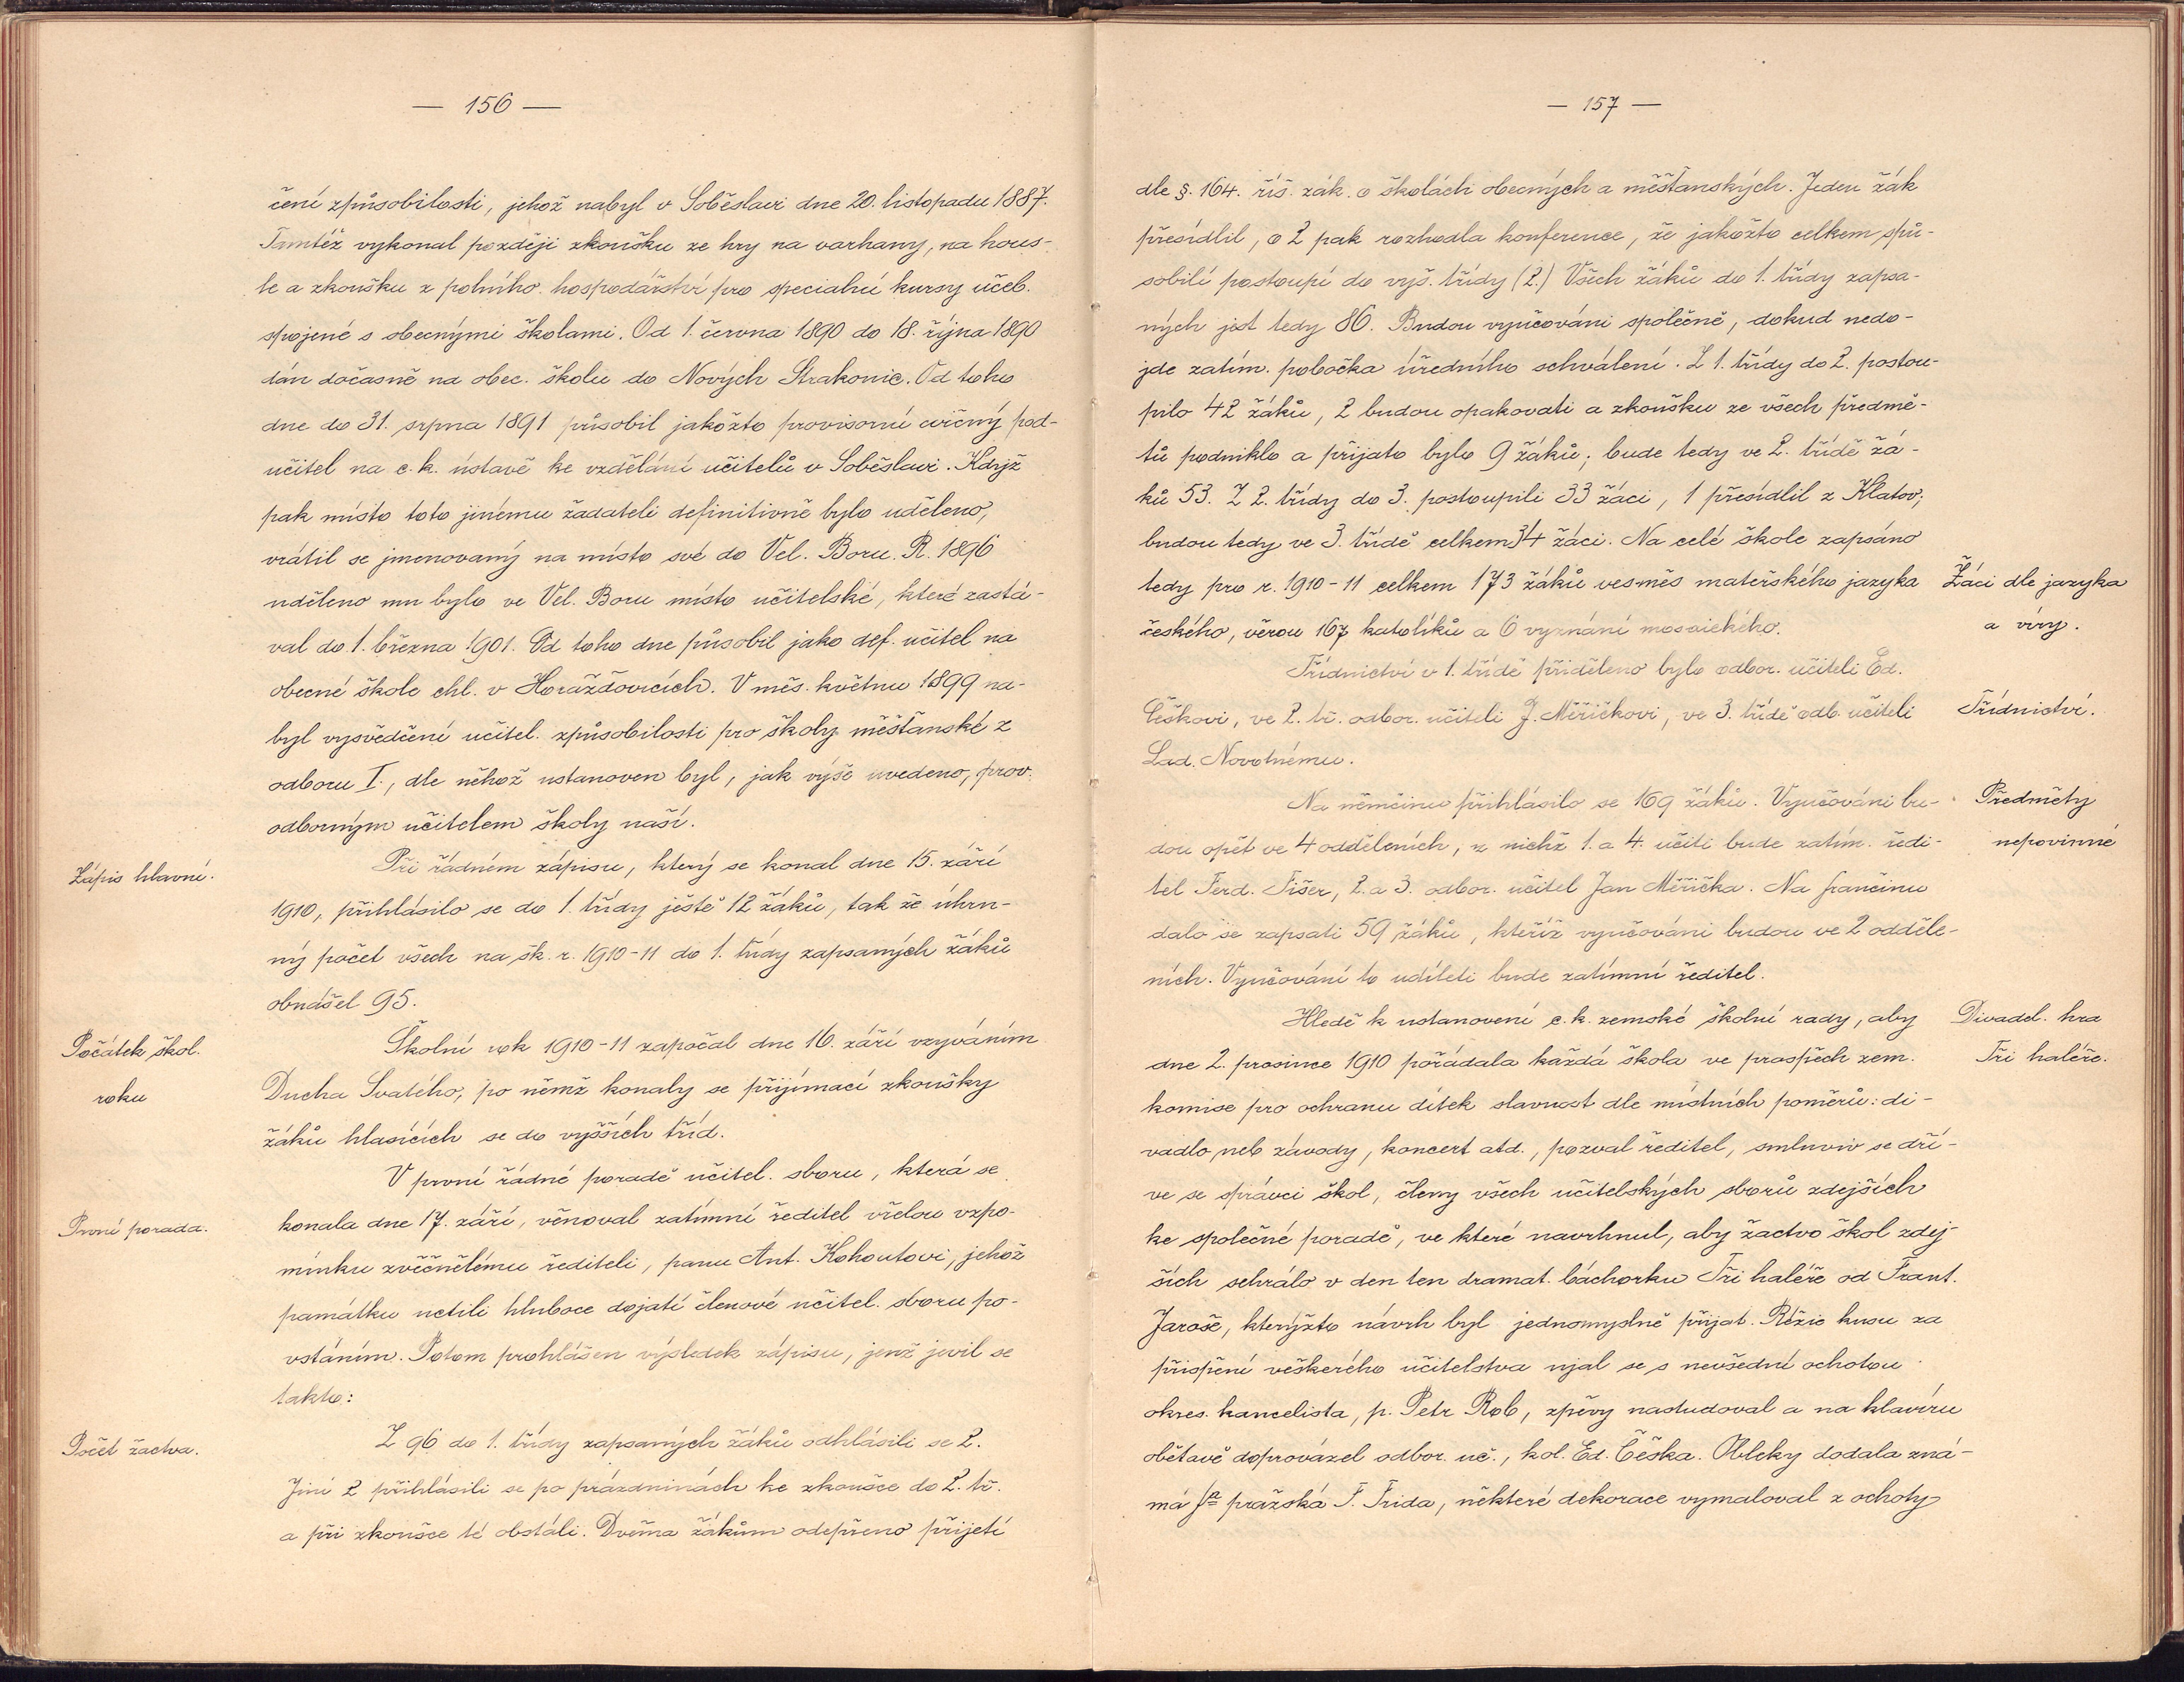 — 156 —
čení způsobilosti, jehož nabyl v Soběslavi dne 20. listopadu 1887.
Tamtéž vykonal později zkoušku ze hry na varhany, na hous-
le a zkoušku z polního hospodářství pro speciální kursy učeb.
spojené s obecnými školami. Od 1. června 1890 do 18. října 1890
dán dočasně na obec. školu do Nových Strakonic. Od toho
dne do 31. srpna 1891 působil jakožto provisorní cvičný pod-
učitel na c. k. ústavě ke vzdělání učitelů v Soběslavi. Když
pak místo toto jinému žadateli definitivně bylo uděleno,
vrátil se jmenovaný na místo své do Vel. Boru. R. 1896
uděleno mu bylo ve Vel. Boru místo učitelské, které zastá-
val do 1. března 1901. Od toho dne působil jako def. učitel na
obecné škole chl. v Horažďovicích. V měs. květnu 1899 na-
byl vysvědčení učitel. způsobilosti pro školy měšťanské z
odboru I., dle něhož ustanoven byl, jak výše uvedeno, prov.
odborným učitelem školy naší.
Zápis hlavní.
Při řádném zápisu, který se konal dne 15. září
1910, přihlásilo se do 1. třídy ještě 12 žáků, tak že úhrn-
ný počet všech na šk. r. 1910-11 do 1. třídy zapsaných žáků
obnášel 95.
Počátek škol.
roku
Školní rok 1910-11 započal dne 16. září vzýváním
Ducha Svatého, po němž konaly se přijímací zkoušky
žáků hlasících se do vyšších tříd.
V první řádné poradě učitel. sboru, která se
První porada.
konala dne 17. září, věnoval zatímní ředitel vřelou vzpo-
mínku zvěčnělému řediteli, panu Ant. Kohoutovi, jehož
památku uctili hluboce dojatí členové učitel. sboru po-
vstáním. Potom prohlášen výsledek zápisu, jenž jevil se
takto:
Počet žactva.
Z 96 do 1. třídy zapsaných žáků odhlásili se 2.
Jiní 2 přihlásili se po prázdninách ke zkoušce do 2. tř.
a při zkoušce té obstáli. Dvěma žákům odepřeno přijetí
— 157 —
dle §. 164. říš. zák. o školách obecných a měšťanských. Jeden žák
přesídlil, o 2 pak rozhodla konference, že jakožto celkem spů-
sobilí postoupí do vyš. třídy (2.) Všech žáků do 1. třídy zapsa-
ných jest tedy 86. Budou vyučováni společně, dokud nedo-
jde zatím. pobočka úředního schválení. Z 1. třídy do 2. postou-
pilo 42 žáků, 2 budou opakovati a zkoušku ze všech předmě-
tů podniklo a přijato bylo 9 žáků; bude tedy ve 2. třídě žá-
ků 53. Z 2. třídy do 3. postoupili 33 žáci, 1 přesídlil z Klatov;
budou tedy ve 3. třídě celkem 34 žáci. Na celé škole zapsáno
tedy pro r. 1910-11 celkem 173 žáků vesměs mateřského jazyka
českého, věrou 167 katolíků a 6 vyznání mosaického.
Žáci dle jazyka
a víry.
Třídnictví v 1. třídě přiděleno bylo odbor. učiteli Ed.
Češkovi, ve 2. tř. odbor. učiteli J. Měřičkovi, ve 3. třídě odb. učiteli
Lad. Novotnému.
Třídnictví.
Na němčinu přihlásilo se 169 žáků. Vyučováni bu-
dou opět ve 4 odděleních, z nichž 1. a 4. učiti bude zatím. ředi-
tel Ferd. Fišer, 2. a 3. odbor. učitel Jan Měřička. Na frančinu
dalo se zapsati 59 žáků, kteříž vyučováni budou ve 2 odděle-
ních. Vyučování to udíleti bude zatímní ředitel.
Předměty
nepovinné
Hledě k ustanovení c. k. zemské školní rady, aby
dne 2. prosince 1910 pořádala každá škola ve prospěch zem.
komise pro ochranu dítek slavnost dle místních poměrů: di-
vadlo neb závody, koncert atd., pozval ředitel, smluviv se dří-
ve se správci škol, členy všech učitelských sborů zdejších
ke společné poradě, ve které navrhnul, aby žactvo škol zdej-
ších sehrálo v den ten dramat. báchorku Tři haléře od Frant.
Jaroše, kterýžto návrh byl jednomyslně přijat. Režie kusu za
přispění veškerého učitelstva ujal se s nevšední ochotou
okres. kancelista, p. Petr Rob, zpěvy nastudoval a na klavíru
obětavě doprovázel odbor. uč., kol. Ed. Češka. Obleky dodala zná-
má fa pražská F. Frida, některé dekorace vymaloval z ochoty
Divadel. hra
Tři haléře.